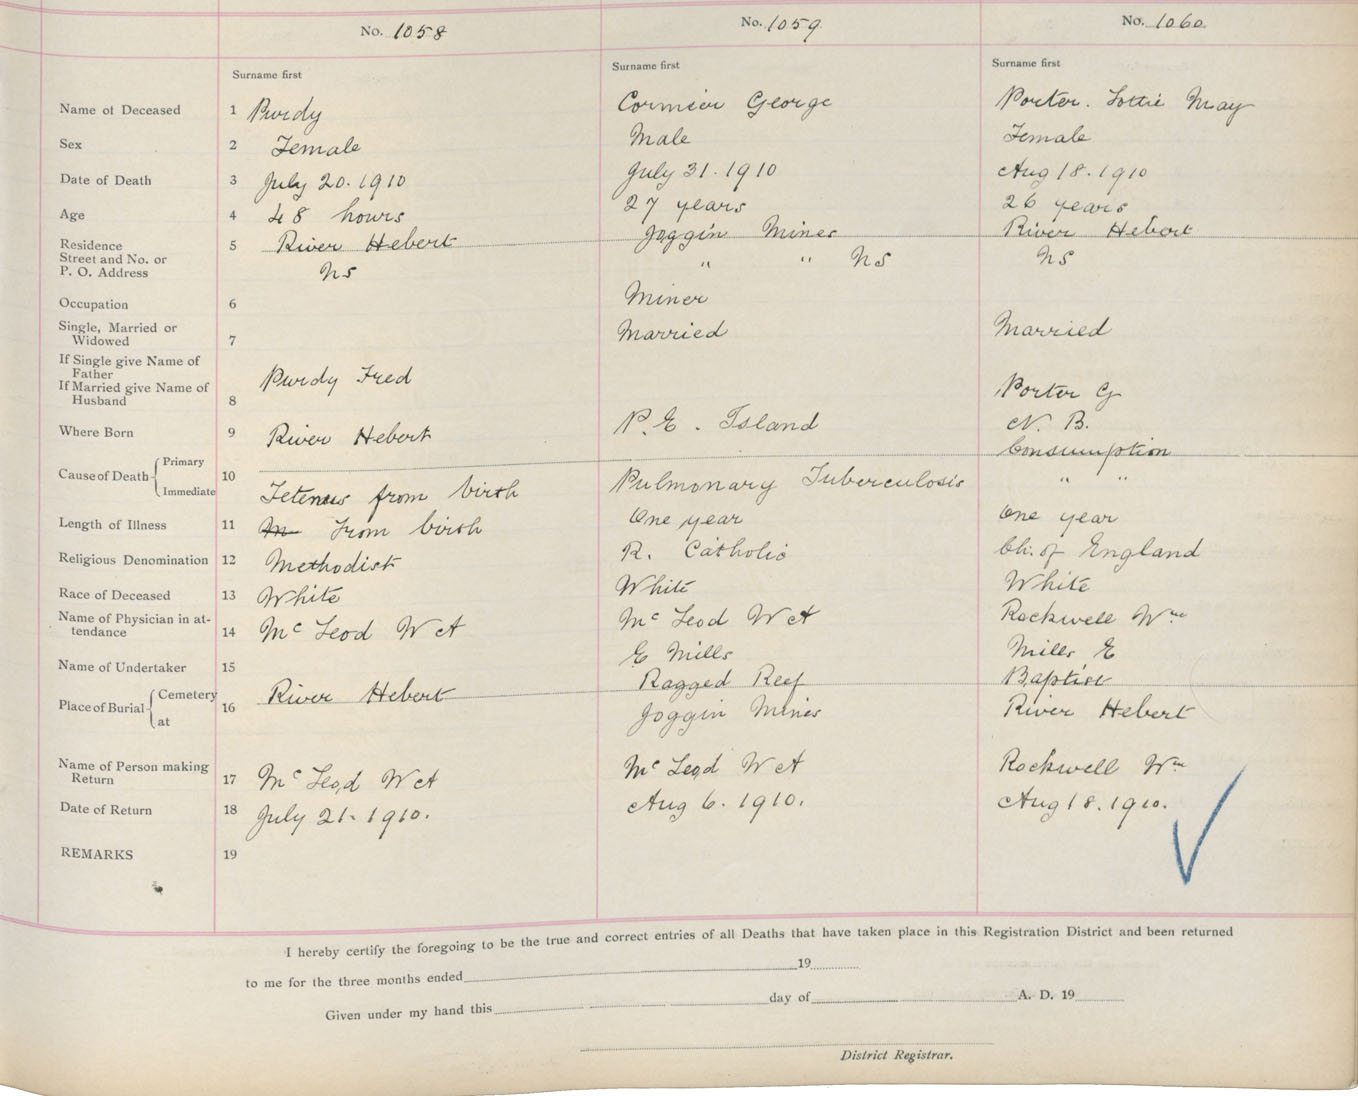 No. 1058 No. 1059 No. 1060
Surname first Surname first Surname first
Name of Deceased 1 Purdy Cormier George Porter. Lottie May
Sex 2 Female Male Female
Date of Death 3 July 20. 1910 July 31. 1910 Aug 18. 1910
Age 4 48 hours 27 years 26 years
Residence 5 River Hebert Joggin Mines River Hebert
Street and No. or
P. O. Address NS " " NS NS
Occupation 6 Miner
Single, Married or
Widowed 7 Married Married
If Single give Name of
Father
If Married give Name of Purdy Fred
Husband 8 Porter G
Where Born 9 River Hebert P. E. Island N. B.
Cause of Death Primary 10 Consumption
Immediate Tetenus from birth Pulmonary Tuberculosis " "
Length of Illness 11 From birth One year One year
Religious Denomination 12 Methodist R. Catholic Ch. of England
Race of Deceased 13 White White White
Name of Physician in at-
tendance 14 Mc Leod W A Mc Leod W A Rockwell Wm
Name of Undertaker 15 E Mills Mills E
Place of Burial Cemetery 16 River Hebert Ragged Reef Baptist
at Joggin Mines River Hebert
Name of Person making
Return 17 Mc Leod W A Mc Leod W A Rockwell Wm
Date of Return 18 July 21. 1910. Aug 6. 1910. Aug 18. 1910.
REMARKS 19
I hereby certify the foregoing to be the true and correct entries of all Deaths that have taken place in this Registration District and been returned
to me for the three months ended 19
Given under my hand this day of A. D. 19
District Registrar.